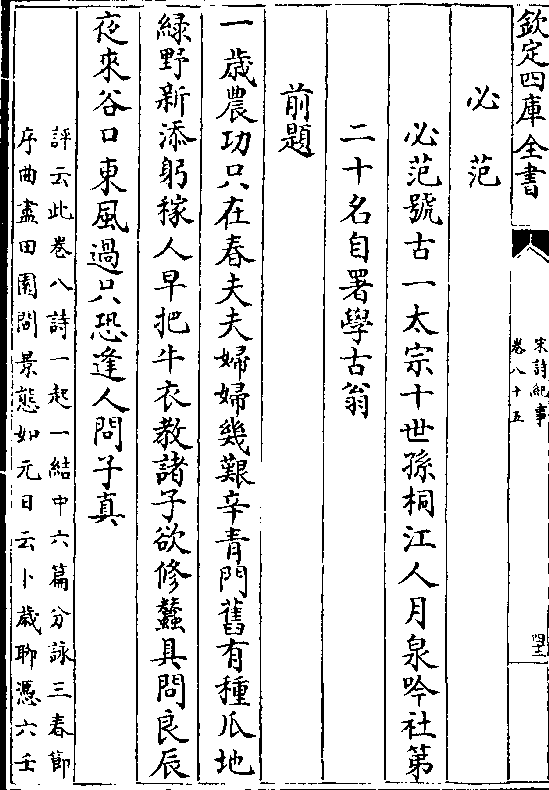 欽定四庫全書
宋詩紀事
卷八十五
必范
必范號古一太宗十世孫桐江人月泉吟社第
二十名自署學古翁
前題
一歲農功只在春夫夫婦婦幾艱辛青門舊有種瓜地
綠野新添躬稼人早把牛衣教諸子欲修蠶具問良辰
夜來谷口東風過只恐逢人問子真
評云此卷八詩一起一結中六篇分詠三春節
序曲盡田園間景態如元日云卜歲聊憑六壬